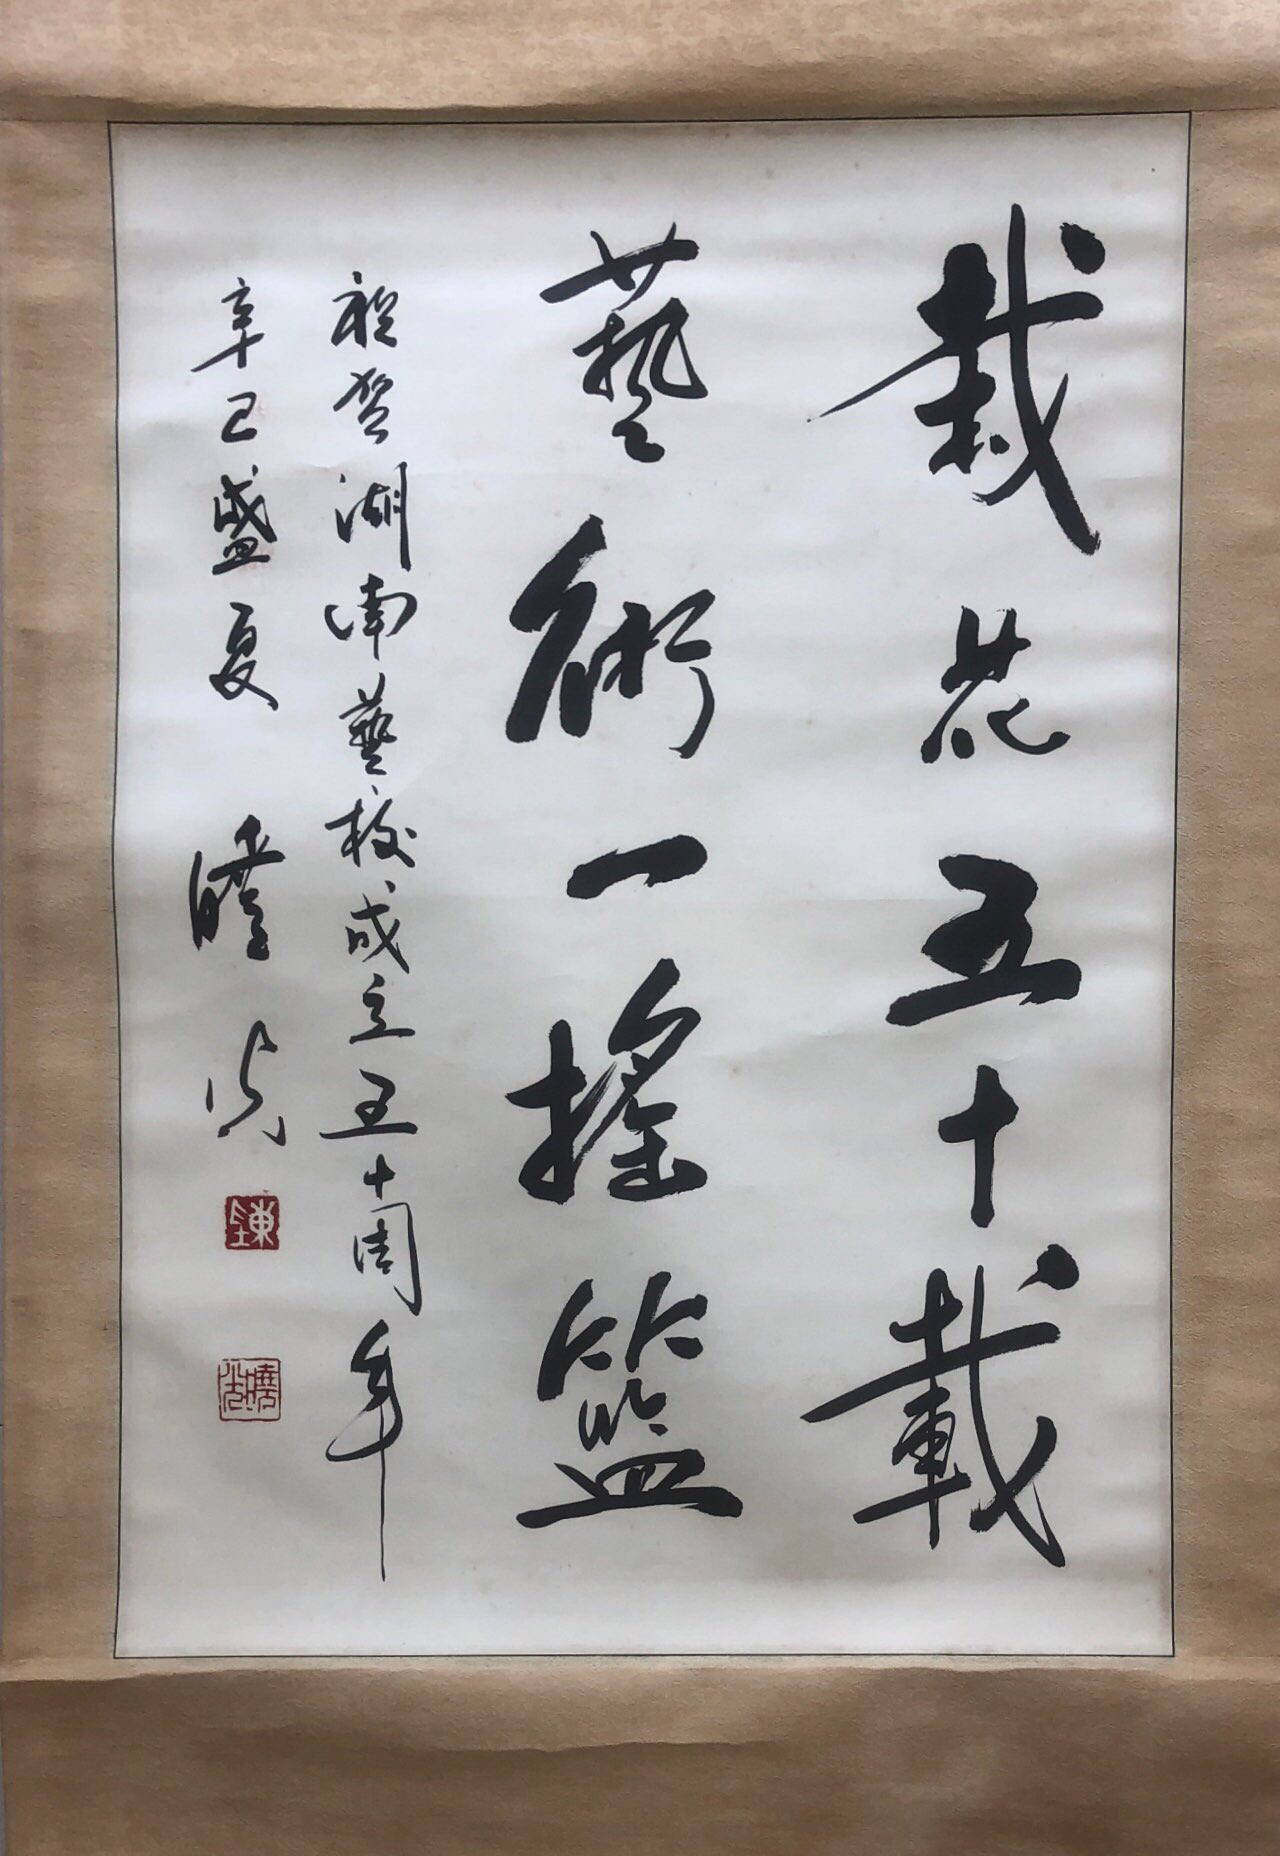 栽花五十載
藝術一搖籃
祝贺湖南藝校成立五十周年
辛巳盛夏 曉光
陳
曉光